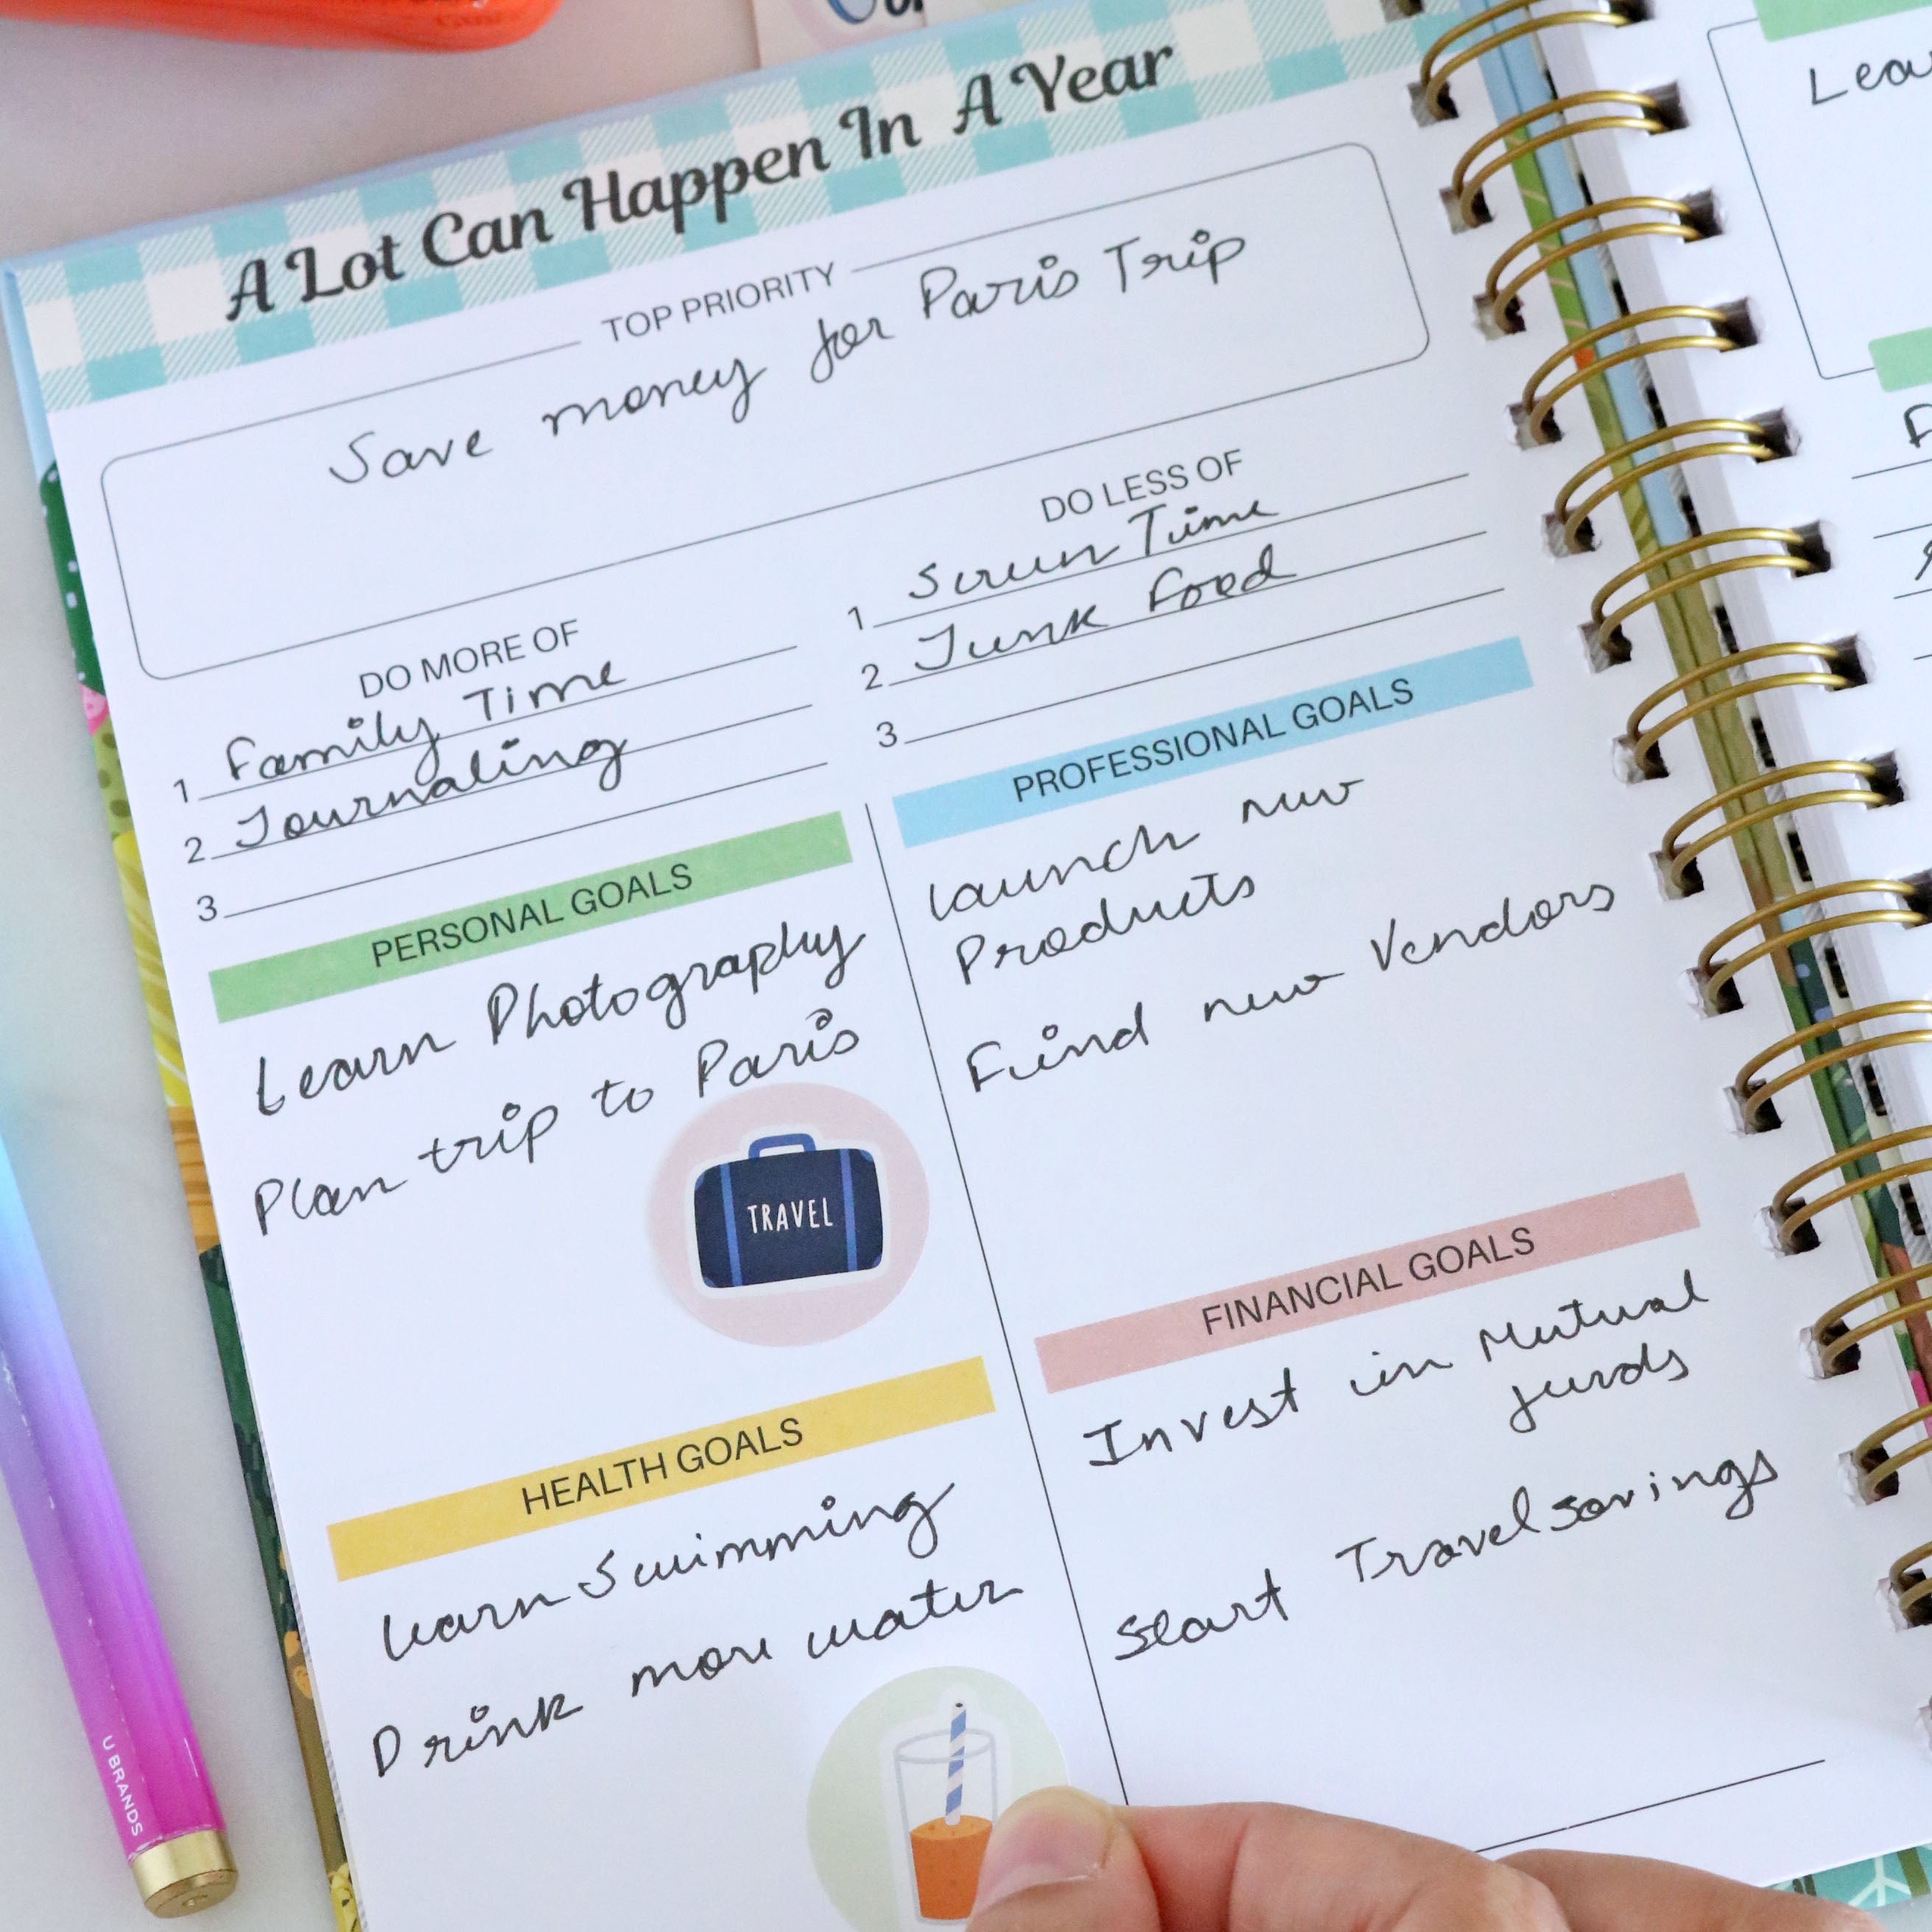 A Lot Can Happen In A Year
TOP PRIORITY
Save money for Paris Trip
DO MORE OF
1 Family Time
2 Journaling
3
DO LESS OF
1 Screen Time
2 Junk Food
3
PERSONAL GOALS
Learn Photography
Plan trip to Paris
TRAVEL
PROFESSIONAL GOALS
Launch new
Products
Find new Vendors
HEALTH GOALS
Learn Swimming
Drink more water
FINANCIAL GOALS
Invest in Mutual
funds
Start Travel savings
U BRANDS